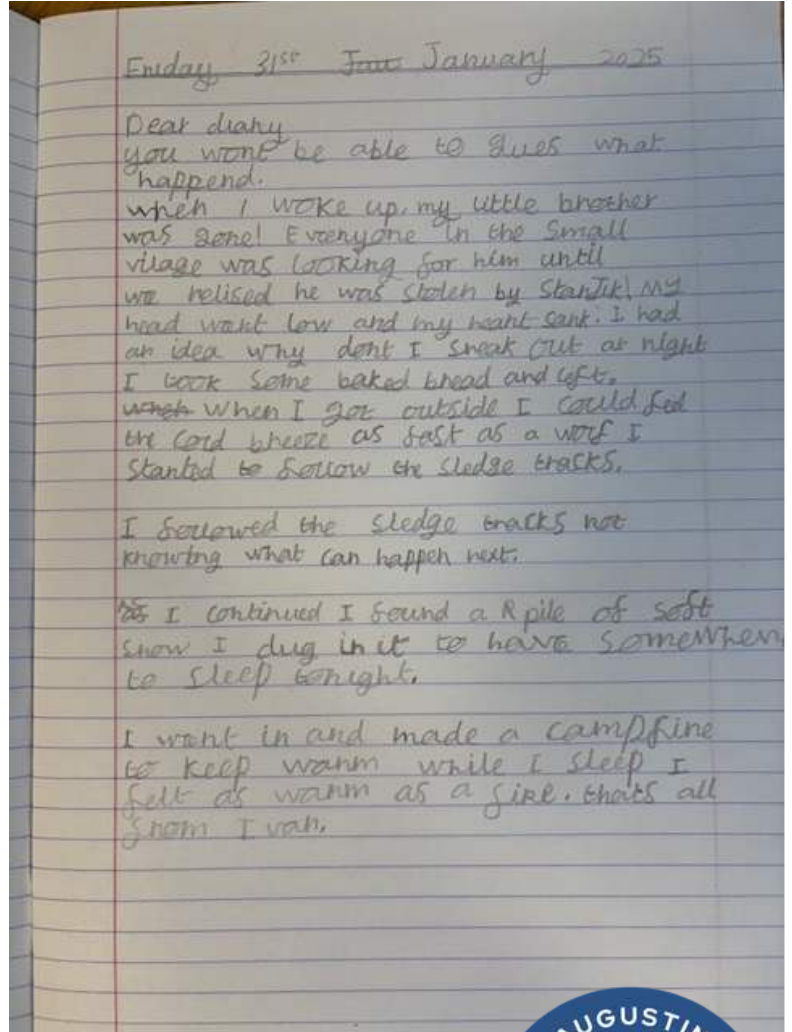 Friday 31st Jau January 2025
Dear diary
you wont be able to gues what
happend.
when I woke up, my little brother
was gone! Everyone in the small
vilage was looking for him until
we relised he was stolen by Stanjik! My
head went low and my heart sank. I had
an idea why dont I sneak out at night
I took some baked bread and left.
When I got outside I could feel
the cold breeze as fast as a wolf I
started to follow the sledge tracks.
I followed the sledge tracks not
knowing what can happen next.
As I continued I found a R pile of soft
snow I dug in it to have somewher
to sleep tonight.
I went in and made a campfire
to keep warm while I sleep I
felt as warm as a fire. thats all
from Ivan.
AUGUSTIN